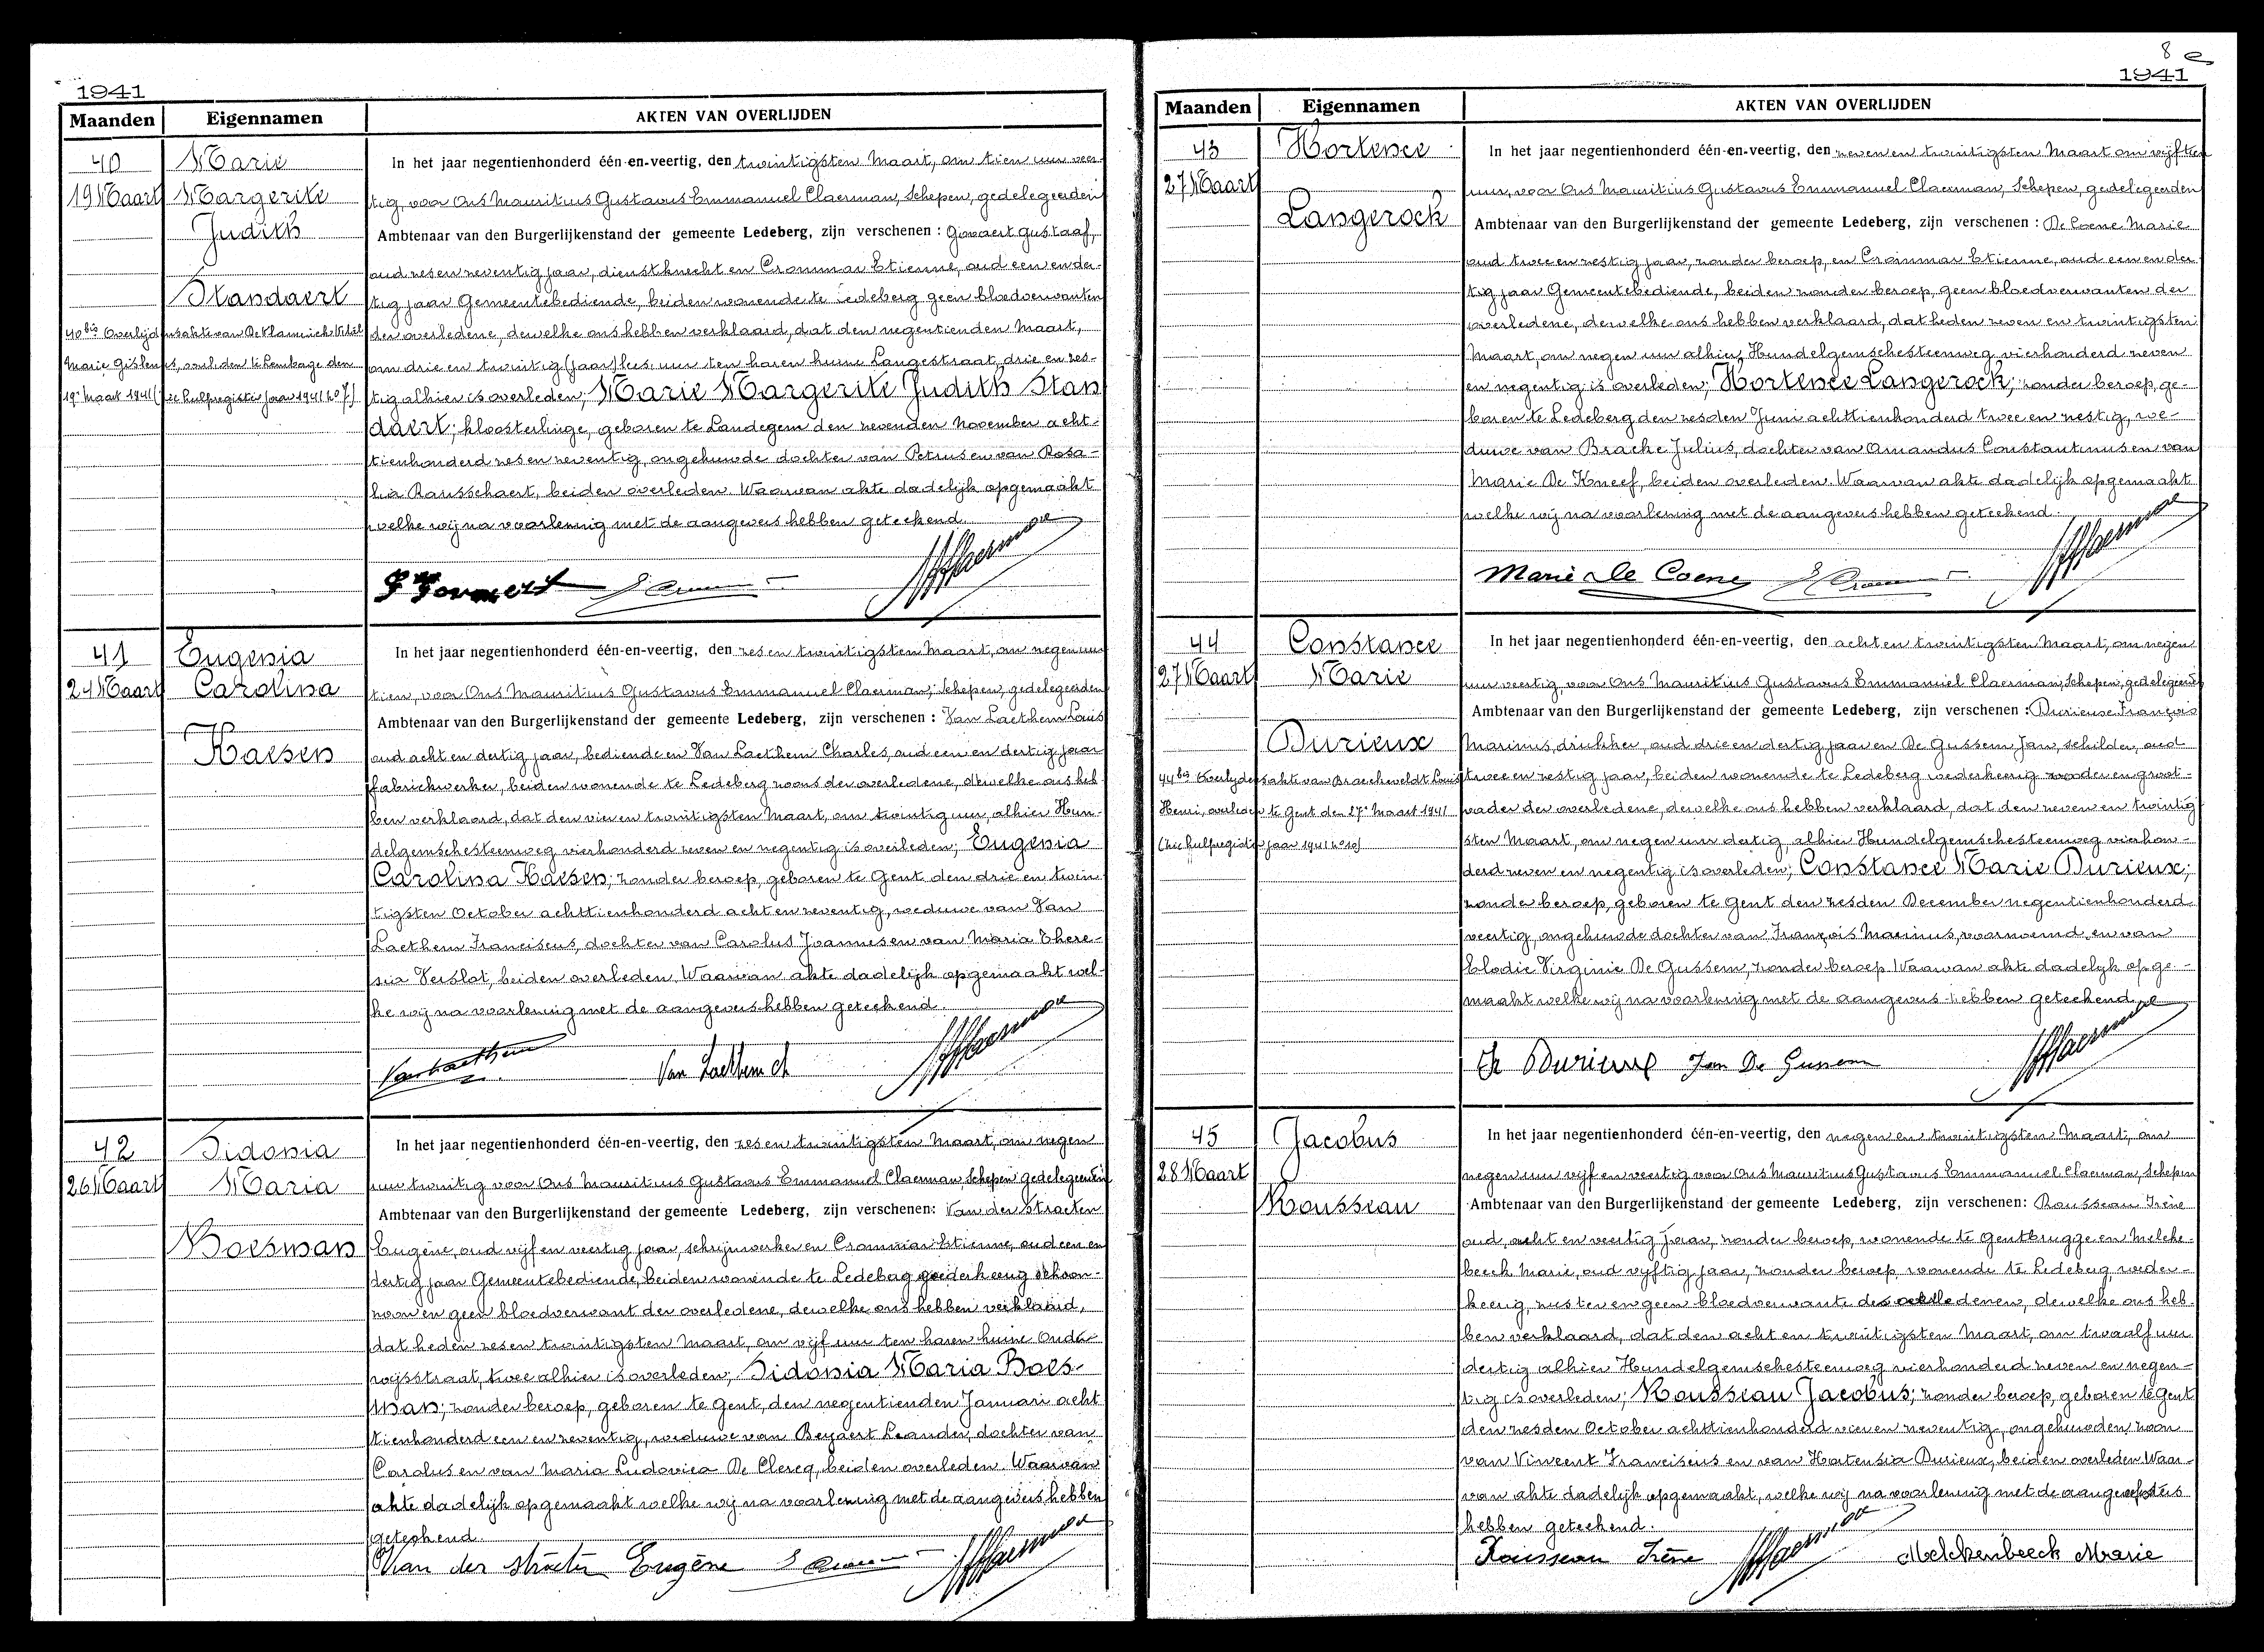 1941
Maanden Eigennamen AKTEN VAN OVERLIJDEN
40 Marie
19 Maart Margerite
Judith
Standaert
40bis Overlijdensakte van De
Marie Gislenus, overleden te Lembage den
19n Maart 1941 (zie hulpregister jaar 1941 no 7)
In het jaar negentienhonderd één-en-veertig, den twintigsten Maart, om tien uur veer-
tig, voor Ons Mauritius Gustavus Emmanuel Claerman, Schepen, gedelegeerden
Ambtenaar van den Burgerlijkenstand der gemeente Ledeberg, zijn verschenen : Govaert Gustaaf,
oud zes en zeventig jaar, dienstknecht en Crommar Etienne, oud een en der-
tig jaar Gemeentebediende, beiden wonende te Ledeberg geen bloedverwanten
der overledene, dewelke ons hebben verklaard, dat den negentienden Maart,
om drie en twintig (jaar) lees: uur ten haren huize Langestraat, drie en zes-
tig alhier is overleden; Marie Margerite Judith Stan
daert; kloosterlinge, geboren te Landegem den zevenden November acht-
tienhonderd zes en zeventig, ongehuwde dochter van Petrus en van Rosa-
lia Rausschaert, beiden overleden. Waarvan akte dadelijk opgemaakt
welke wij na voorlezing met de aangevers hebben geteekend.
41 Eugenia
24 Maart Carolina
Haesen
In het jaar negentienhonderd één-en-veertig, den zes en twintigsten Maart, om negen uur
tien, voor Ons Mauritius Gustavus Emmanuel Claerman, Schepen, gedelegeerden
Ambtenaar van den Burgerlijkenstand der gemeente Ledeberg, zijn verschenen : Van Laethem Louis
oud acht en dertig jaar, bediende en Van Laethem Charles, oud een en dertig jaar
fabriekwerker, beiden wonende te Ledeberg zoons der overledene, dewelke ons heb-
ben verklaard, dat den vier en twintigsten Maart, om twintig uur, alhier Hun-
delgemschesteenweg vierhonderd zeven en negentig is overleden; Eugenia
Carolina Haesen; zonder beroep, geboren te Gent den drie en twin
tigsten October achttienhonderd acht en zeventig, weduwe van Van
Laethem Franciscus, dochter van Carolus Joannes en van Maria There-
sia Verslot, beiden overleden. Waarvan akte dadelijk opgemaakt wel-
ke wij na voorlezing met de aangevers hebben geteekend.
Vanlaethem Van Laethem Ch
42 Sidonia
26 Maart Maria
Boesman
In het jaar negentienhonderd één-en-veertig, den zes en twintigsten Maart, om negen
uur twintig voor Ons Mauritius Gustavus Emmanuel Claerman, Schepen gedelegeerden
Ambtenaar van den Burgerlijkenstand der gemeente Ledeberg, zijn verschenen: Van der Straeten
Eugène, oud vijf en veertig jaar, schrijnwerker en Crommar Etienne, oud een en
dertig jaar Gemeentebediende, beiden wonende te Ledeberg wederkeerig schoon-
zoon en geen bloedverwant der overledene, dewelke ons hebben verklaard,
dat heden zes en twintigsten Maart, om vijf uur ten haren huize Onder-
wijsstraat, twee alhier is overleden; Sidonia Maria Boes-
man; zonder beroep, geboren te Gent, den negentienden Januari acht
tienhonderd een en zeventig, weduwe van Beyaert Leander, dochter van
Carolus en van Maria Ludovica De Clercq, beiden overleden. Waarvan
akte dadelijk opgemaakt welke wij na voorlezing met de aangevers hebben
geteekend.
Van der Straeten Eugène
8 e
1941
Maanden Eigennamen AKTEN VAN OVERLIJDEN
43 Hortence
27 Maart
Langerock
In het jaar negentienhonderd één-en-veertig, den zeven en twintigsten Maart om vijftien
uur, voor Ons Mauritius Gustavus Emmanuel Claerman, Schepen, gedelegeerden
Ambtenaar van den Burgerlijkenstand der gemeente Ledeberg, zijn verschenen : De Coene Marie
oud twee en zestig jaar, zonder beroep, en Crommar Etienne, oud een en der-
tig jaar Gemeentebediende, beiden zonder beroep, geen bloedverwanten der
overledene, dewelke ons hebben verklaard, dat heden zeven en twintigsten
Maart, om negen uur alhier, Hundelgemschesteenweg vierhonderd zeven
en negentig is overleden; Hortence Langerock; zonder beroep, ge-
boren te Ledeberg den zesden Juni achttienhonderd twee en zestig, we-
duwe van Bracke Julius, dochter van Amandus Constantinus en van
Marie De Kneef, beiden overleden. Waarvan akte dadelijk opgemaakt
welke wij na voorlezing met de aangevers hebben geteekend.
Marie De Coene
44 Constance
27 Maart Marie
Durieux
44bis Overlijdensakte van Broeckeveldt Louis
Henri, overleden te Gent den 27n Maart 1941
(zie hulpregister jaar 1941 no 10)
In het jaar negentienhonderd één-en-veertig, den acht en twintigsten Maart, om negen
uur veertig, voor Ons Mauritius Gustavus Emmanuel Claerman, Schepen, gedelegeerden
Ambtenaar van den Burgerlijkenstand der gemeente Ledeberg, zijn verschenen : Durieux François
Marinus, drukker, oud drie en dertig jaar en De Gussem Jan, schilder, oud
twee en zestig jaar, beiden wonende te Ledeberg wederkeerig vader en groot-
vader der overledene, dewelke ons hebben verklaard, dat den zeven en twintig
sten Maart, om negen uur dertig, alhier Hundelgemschesteenweg vierhon-
derd zeven en negentig is overleden; Constance Marie Durieux;
zonder beroep, geboren te Gent den zesden December negentienhonderd
veertig, ongehuwde dochter van François Marinus, voornoemd, en van
Elodie Virginie De Gussem, zonder beroep. Waarvan akte dadelijk opge-
maakt welke wij na voorlezing met de aangevers hebben geteekend.
Durieux Jan De Gussem
45 Jacobus
28 Maart
Rousseau
In het jaar negentienhonderd één-en-veertig, den negen en twintigsten Maart, om
negen uur vijf en veertig voor Ons Mauritius Gustavus Emmanuel Claerman, Schepen
Ambtenaar van den Burgerlijkenstand der gemeente Ledeberg, zijn verschenen: Rousseau Irène
oud, acht en veertig jaar, zonder beroep, wonende te Gentbrugge en Melcke-
beeck Marie, oud vijftig jaar, zonder beroep wonende te Ledeberg, weder-
keerig, zuster en geen bloedverwante des overledenen, dewelke ons heb-
ben verklaard, dat den acht en twintigsten Maart, om twaalf uur
dertig alhier Hundelgemschesteenweg vierhonderd zeven en negen-
tig is overleden; Rousseau Jacobus; zonder beroep, geboren te Gent
den zesden October achttienhonderd vier en zeventig, ongehuwden zoon
van Vincent Franciscus en van Hortensia Durieux, beiden overleden. Waar-
van akte dadelijk opgemaakt, welke wij na voorlezing met de aangeefsters
hebben geteekend.
Rousseau Irène Melckenbeeck Marie